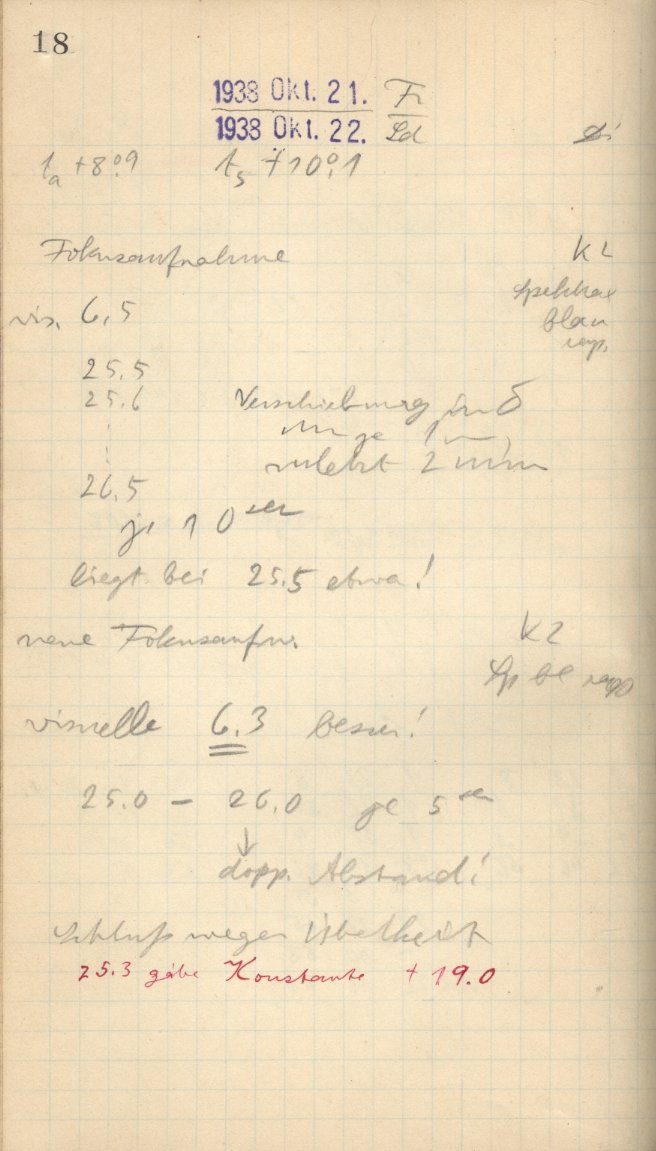 18
1938 Okt. 21. Fr
1938 Okt. 22. Sd
ta +8°.9 ts +10°.1
Fokusaufnahme K2
vis. 6,5
Blau
25.5
25.6 Verschiebung in δ
um je 1
zuletzt 2 mm
26.5
je 10 sec
liegt bei 25.5 etwa!
neue Fokusaufn. K2
Sp Bl
visuelle 6.3 besser!
25.0 – 26.0 je 5 sec
↓
dopp. Abstand!
Schluß wegen
25.3 gäbe Konstante + 19.0